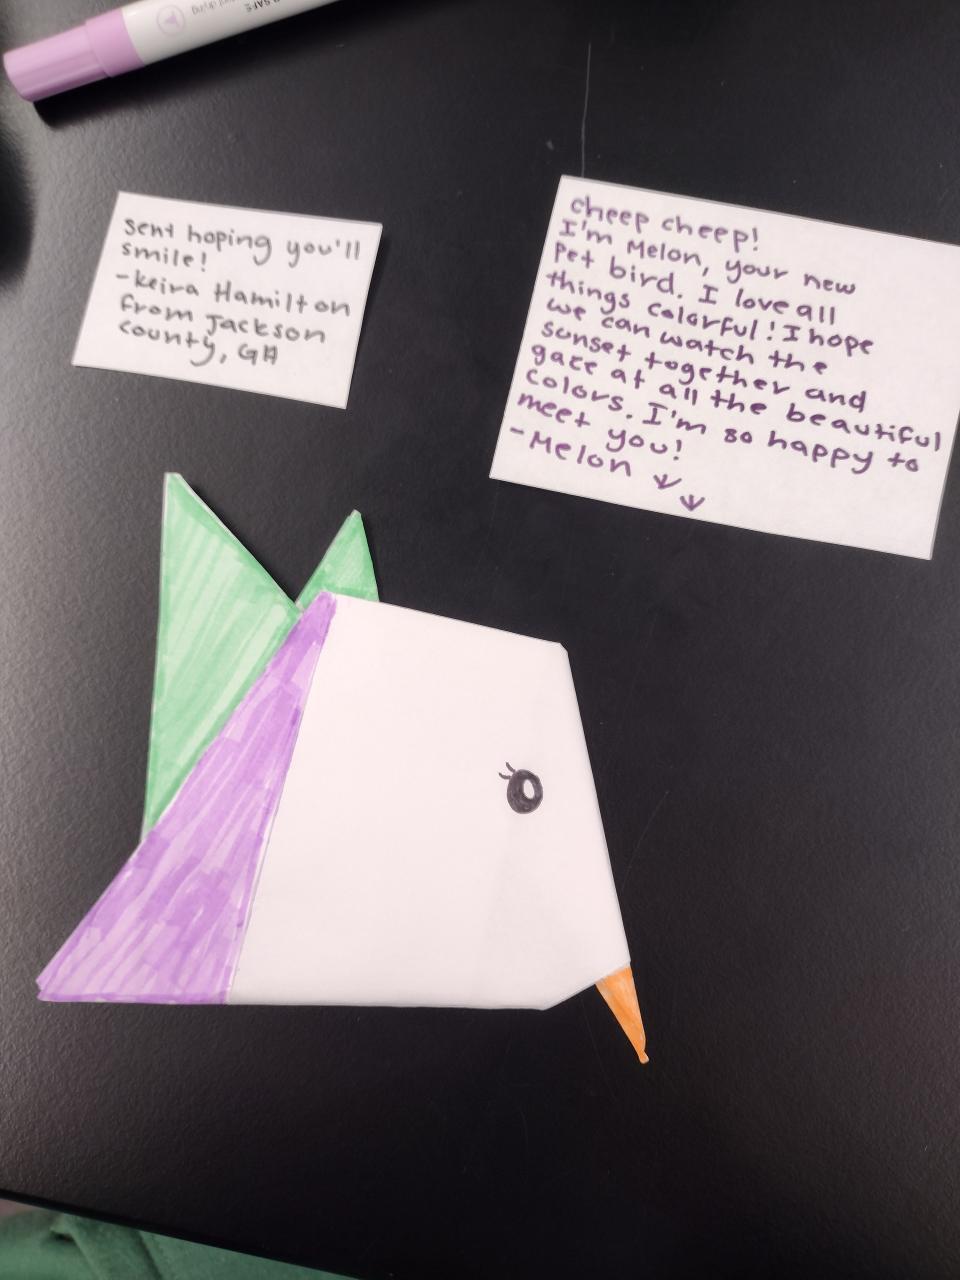 sent hoping you'll
smile!
-keira Hamilton
from Jackson
county, GA
cheep cheep!
I'm Melon, your new
pet bird. I love all
things colorful! I hope
we can watch the
sunset together and
gaze at all the beautiful
colors. I'm so happy to
meet you!
-Melon